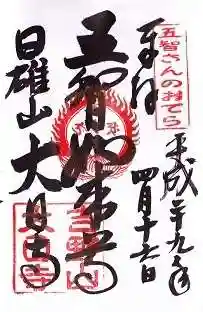 五智さんのおてら
奉拝
平成二十九年
四月十六日
五智如来
日雄山
大日寺